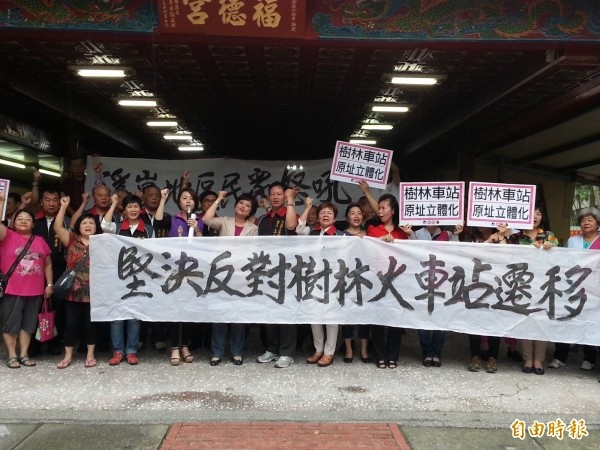 福德宮
區民眾怒吼
樹林車站
原址立體化
樹林車站
原址立體化
樹林車站
原址立體化
堅決反對樹林火車站遷移
自由時報